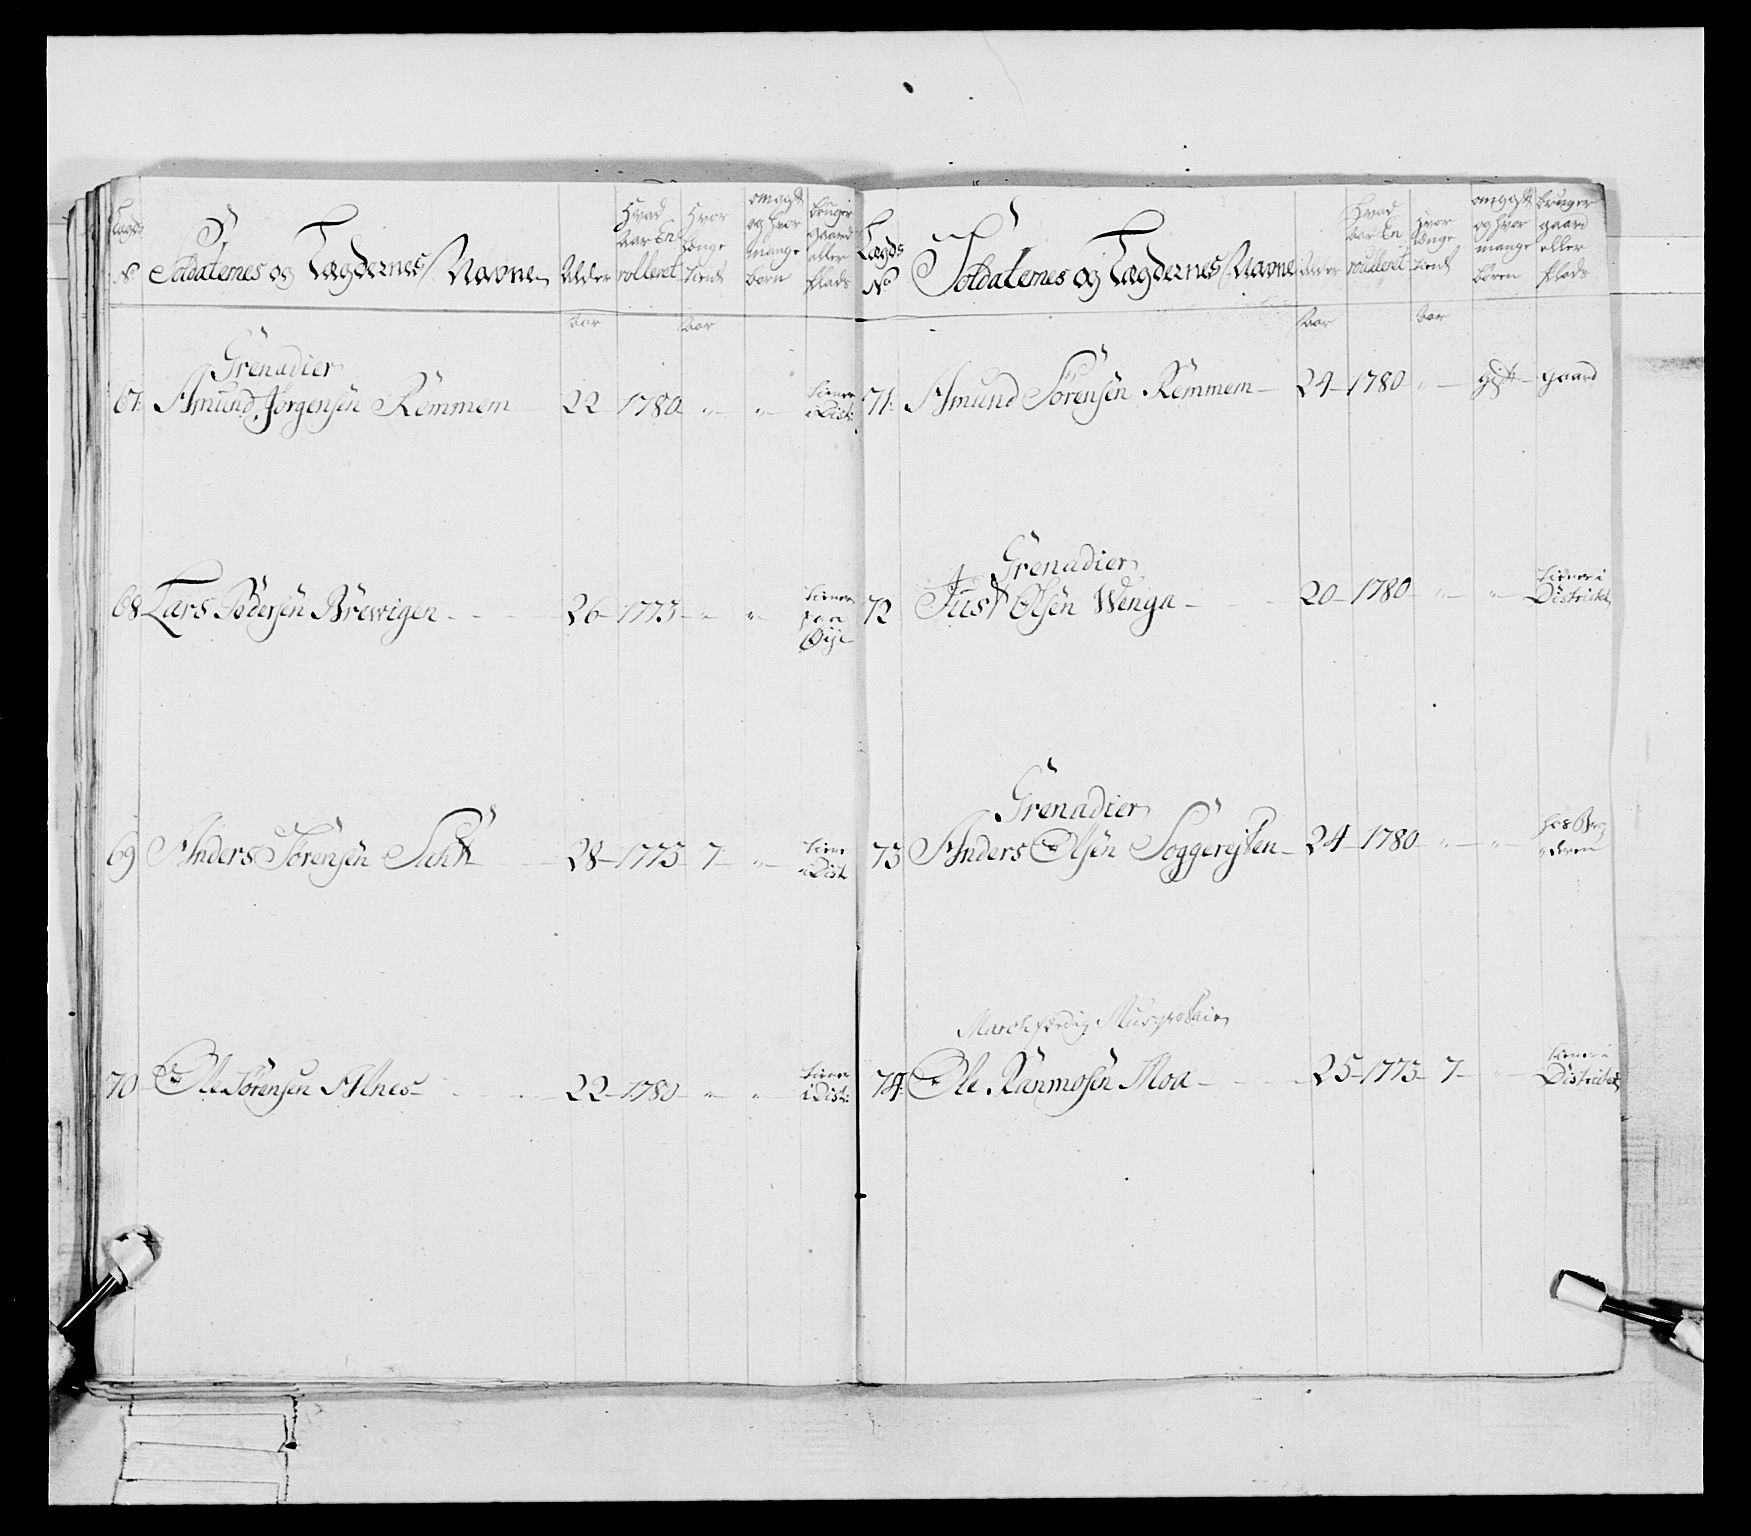 Lægds
No
Soldaternes og Lægdernes Navne
Alder
Hvad
Aar En
rolleret
Hvor
længe
tient
om gift
og hvor
mange
børn
bruger
gaard
eller
plads
aar
aar
Grenadier
67. Amund Jørgensen Remmem 22 1780 " " tiener
i Dist:
68 Lars Pedersen Brewigen 26 1773 " " tiener
paa
Øye
69 Anders Sørensen 28 1773 7 " tiener
i Dist
70 Ole Sørensen Alnes 22 1780 " " tiener
i Dist:
Lægds
No
Soldaternes og Lægdernes Navne
Alder
Hvad
Aar En
roulleret
Hvor
længe
tient
om gift
og hvor
mange
børen
bruger
gaard
eller
plads
aar
aar
71. Amund Sørensen Remmem 24 1780 " gift gaard
Grenadier
72 Just Olsen Wenga 20 1780 " " tiener i
Districtet
Grenadier
73 Anders Olsen 24 1780 " " hos
Marchfærdig Musqvetair
74. Ole Moa 25 1773 7 " tiener i
Districtet